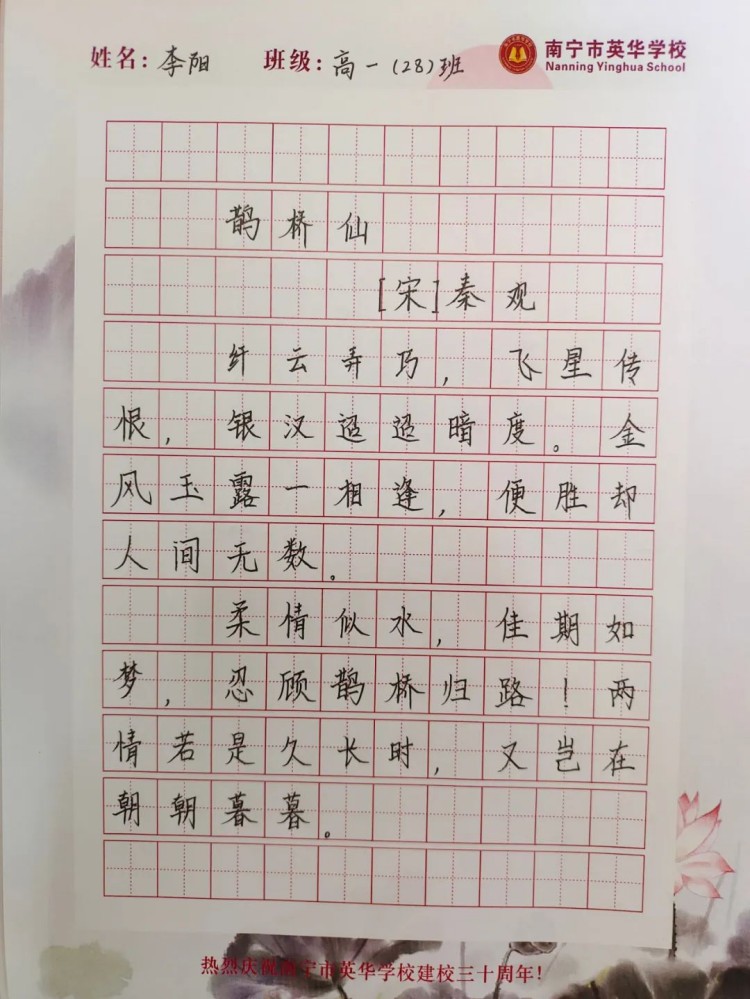 姓名：李阳 班级：高一（28）班
南宁市英华学校
Nanning Yinghua School
鹊桥仙
[宋]秦观
纤云弄巧，飞星传
恨，银汉迢迢暗度。金
风玉露一相逢，便胜却
人间无数。
柔情似水，佳期如
梦，忍顾鹊桥归路！两
情若是久长时，又岂在
朝朝暮暮。
热烈庆祝南宁市英华学校建校三十周年！